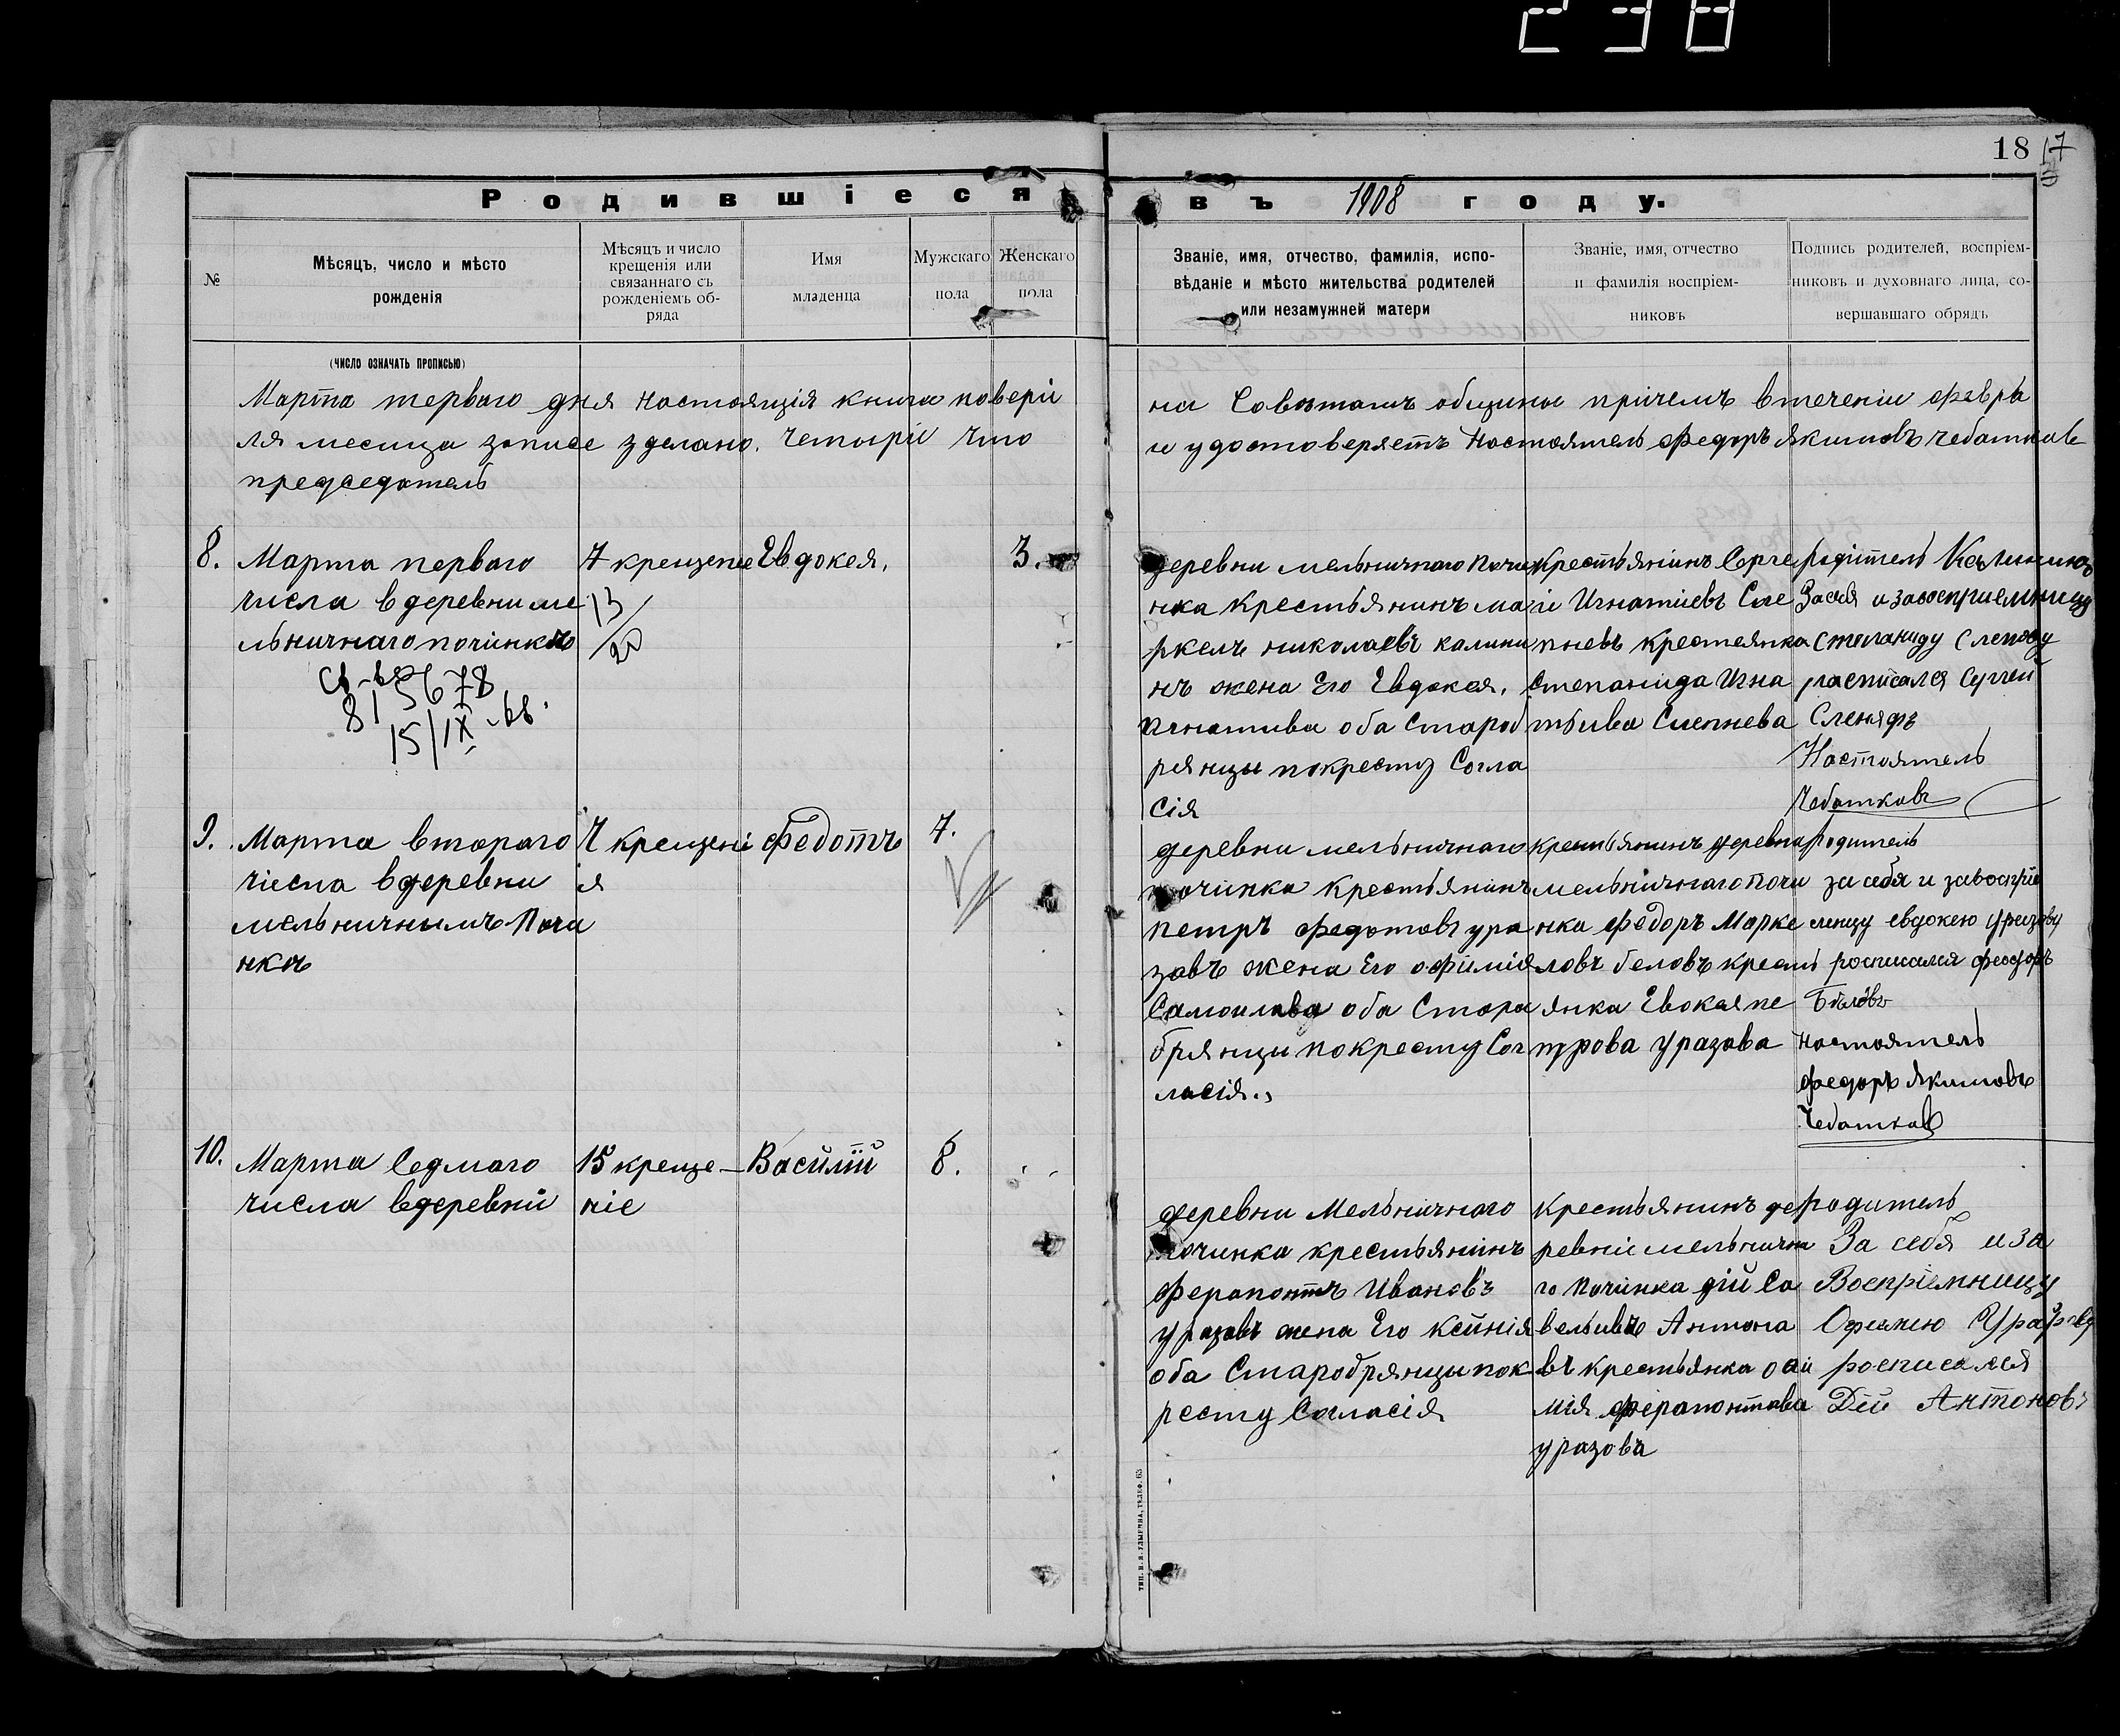 238
18 17
Родившіеся
въ 1908 году.
№
Мѣсяцъ, число и мѣсто
рожденія
Мѣсяцъ и число
крещенія или
связаннаго съ
рожденіемъ об-
ряда
Имя
младенца
Мужскаго
пола
Женскаго
пола
Званіе, имя, отчество, фамилія, испо-
вѣданіе и мѣсто жительства родителей
или незамужней матери
Званіе, имя, отчество
и фамилія воспріем-
никовъ
Подпись родителей, воспріем-
никовъ и духовнаго лица, со-
вершавшаго обрядъ
(число означать прописью)
Марта перваго дня настоящія книга повери
ля месяца записе зделано. Четыріи Что
председатель
на Советамъ общины причемъ втеченіи февра
и удостоверяетъ Настоятель федоръ якимовъ чебатков
8.
Марта перваго
числа вдеревни ме
льничнаго починка
св-во
815678
15/IX-68.
7 крещение
13/20
Евдокея,
3.
деревни мельничнаго Почи
нка крестьянинъ ма
ркелъ николаевъ калини
нъ жена Его Евдокея,
Игнатива оба Староб
рянцы покресту Согла
сія
Крестьянинъ Серге
й Игнатіевъ Сле
пневъ крестеянка
Степанида Игна
тьива Слепнева
родитель Калининъ
За себя и завосприемницу
степаниду
расписался Сергей
Настоятель
Чебатковъ
9.
Марта второго
чиесла вдеревни
мельничнымъ Почи
нкъ
Ч крещені
я
Федотъ
7.
деревни мельничнаго
починка Крестьянинъ
петръ федотовъ ура
зовъ жена Его офимія
Самоилова оба Старо
брянцы покресту Сог
ласія.,
крестьянинъ деревна
мельничнаго почи
нка федоръ Марке
ловъ беловъ крест
янка Евокея пе
трова уразова
родитель
за себя и завоспріе
мницу евдокею уразову
росписался феодоръ
Бѣловъ
Настоятель
федоръ якимовъ
Чебатков
10.
Марта Седмаго
числа вдеревни
15 креще-
ніе
Василій
8.
деревни Мельничнаго
починка крестьянинъ
Ферапонтъ Ивановъ
уразовъ жена Его Ксинія
оба Старобрянцы пок
ресту Согласія
Крестьянинъ де
ревни мельнична
го Починка дій Са
вельивъ Антоно
въ крестьянка офи
мія ферапонтова
уразова
родитель
За себя и за
Воспріемницу
Офимею Уразову
росписался
Дій Антоновъ